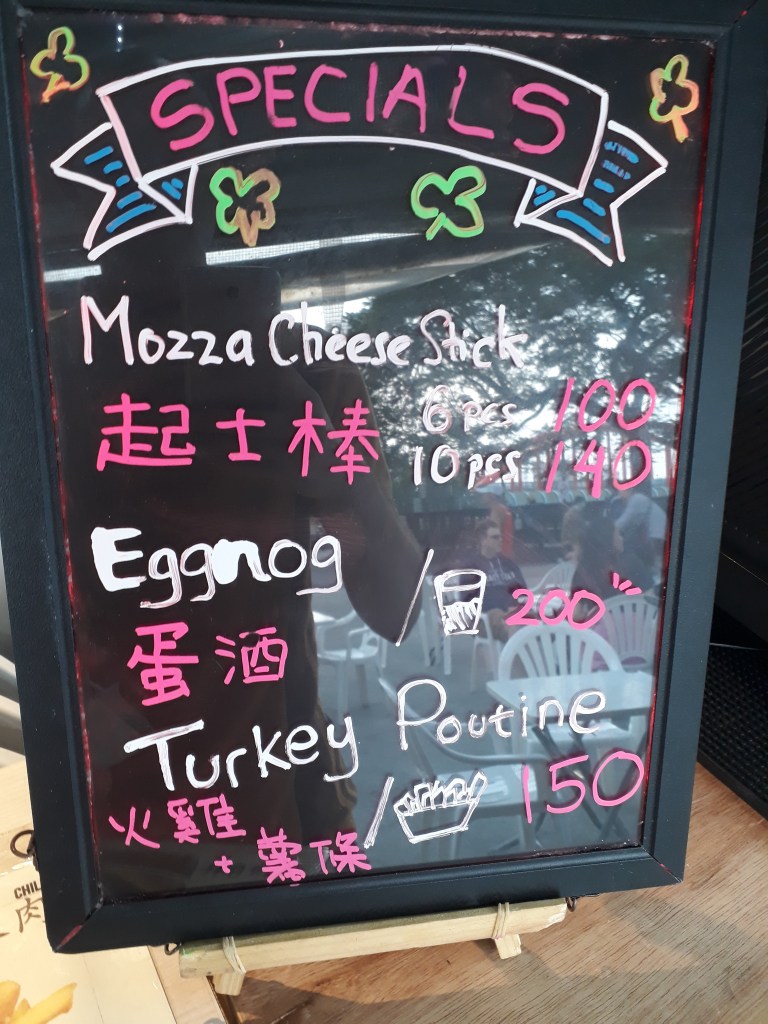 SPECIALS
Mozza Cheese Stick
起士棒 6 pcs 100
10 pcs 140
Eggnog
蛋酒 / 200
Turkey Poutine
火雞 + 薯條 / 150
CHIL
肉